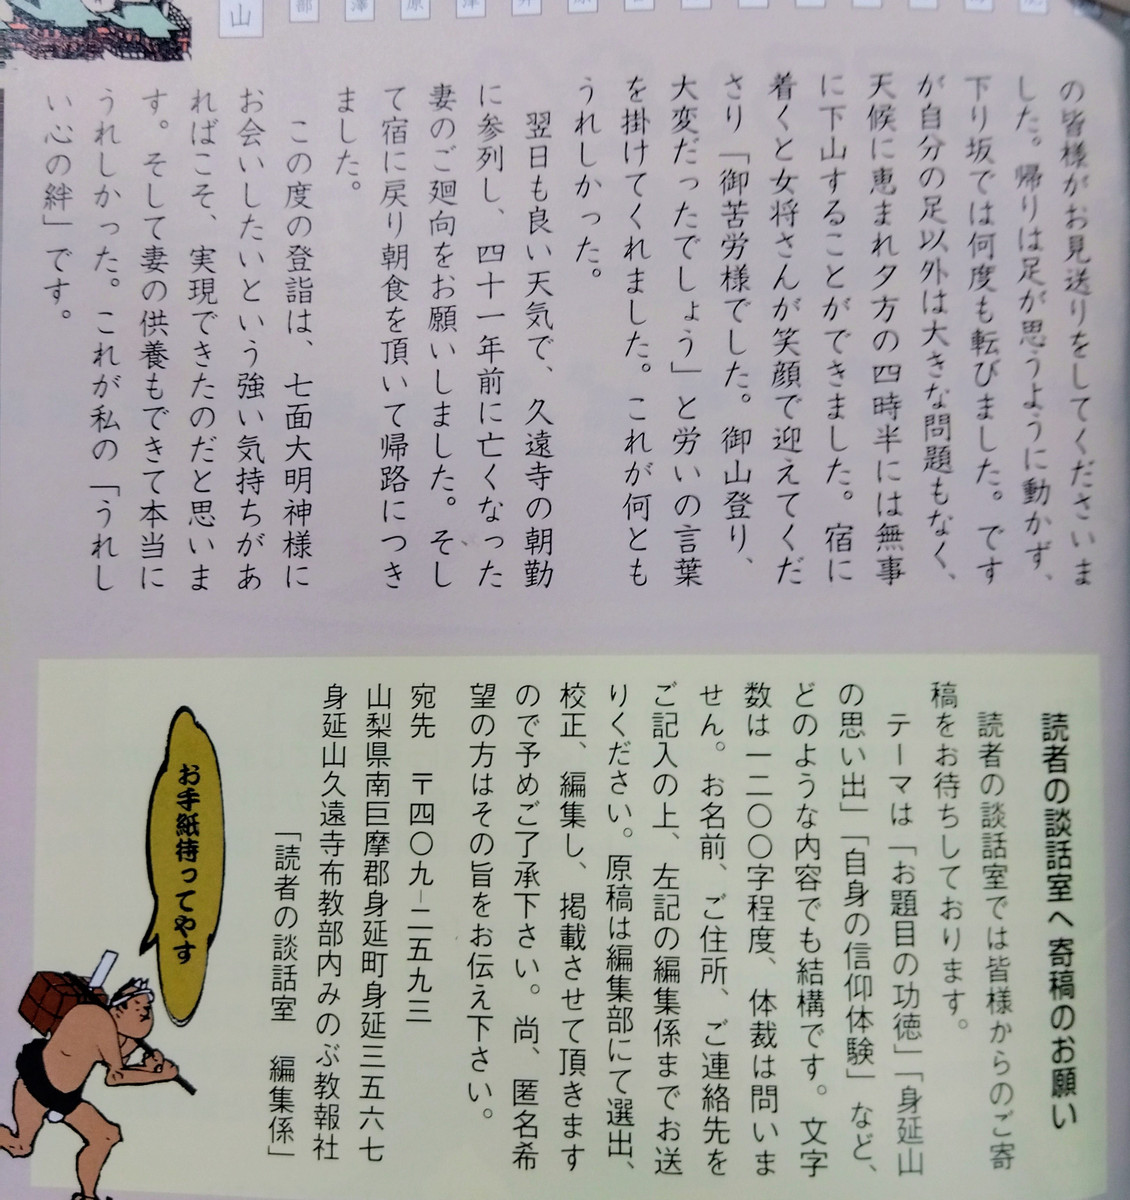 山
部
澤
原
の皆様がお見送りをしてくださいま
した。帰りは足が思うように動かず、
下り坂では何度も転びました。です
が自分の足以外は大きな問題もなく、
天候に恵まれ夕方の四時半には無事
に下山することができました。宿に
着くと女将さんが笑顔で迎えてくだ
さり「御苦労様でした。御山登り、
大変だったでしょう」と労いの言葉
を掛けてくれました。これが何とも
うれしかった。
翌日も良い天気で、久遠寺の朝勤
に参列し、四十一年前に亡くなった
妻のご廻向をお願いしました。そし
て宿に戻り朝食を頂いて帰路につき
ました。
この度の登詣は、七面大明神様に
お会いしたいという強い気持ちがあ
ればこそ、実現できたのだと思いま
す。そして妻の供養もできて本当に
うれしかった。これが私の「うれし
い心の絆」です。
読者の談話室へ 寄稿のお願い
読者の談話室では皆様からのご寄
稿をお待ちしております。
テーマは「お題目の功徳」「身延山
の思い出」「自身の信仰体験」など、
どのような内容でも結構です。文字
数は一二〇〇字程度、体裁は問いま
せん。お名前、ご住所、ご連絡先を
ご記入の上、左記の編集係までお送
りください。原稿は編集部にて選出、
校正、編集し、掲載させて頂きます
ので予めご了承下さい。尚、匿名希
望の方はその旨をお伝え下さい。
宛先 〒四〇九−二五九三
山梨県南巨摩郡身延町身延三五六七
身延山久遠寺布教部内みのぶ教報社
「読者の談話室 編集係」
お手紙待ってやす